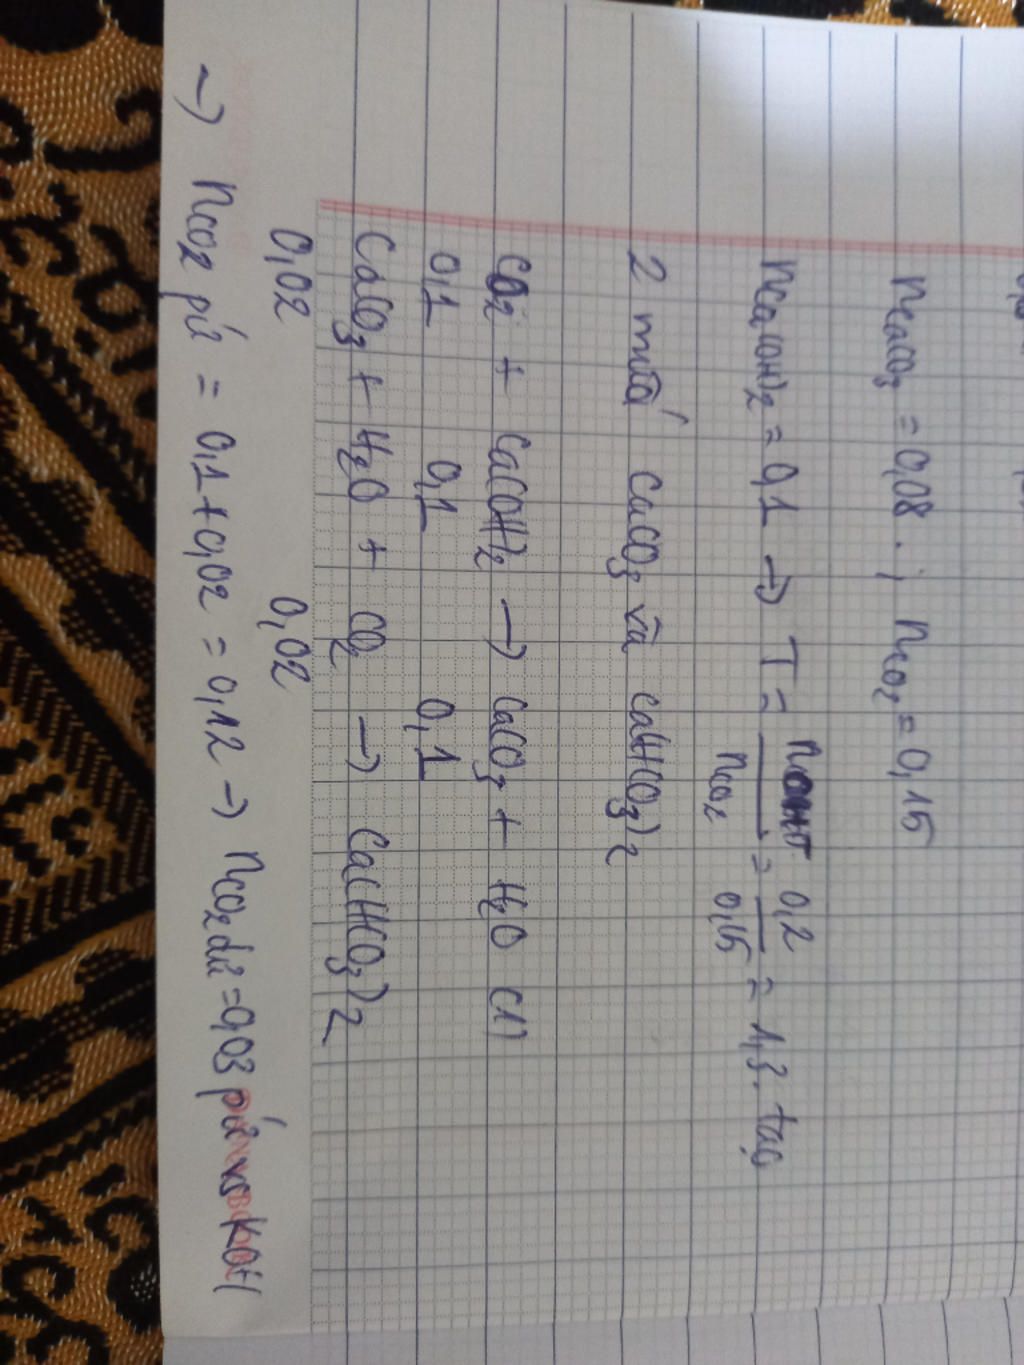 nCaCO3 = 0,08 ; nCO2 = 0,15
nCa(OH)2 = 0,1 → T = nOH- / nCO2 = 0,2 / 0,15 = 1,3. tạo
2 muối CaCO3 và Ca(HCO3)2
CO2 + Ca(OH)2 → CaCO3 + H2O (1)
0,1 0,1 0,1
CaCO3 + H2O + CO2 → Ca(HCO3)2
0,02 0,02
→ nCO2 pứ = 0,1 + 0,02 = 0,12 → nCO2 dư = 0,03 pứ vs KOH